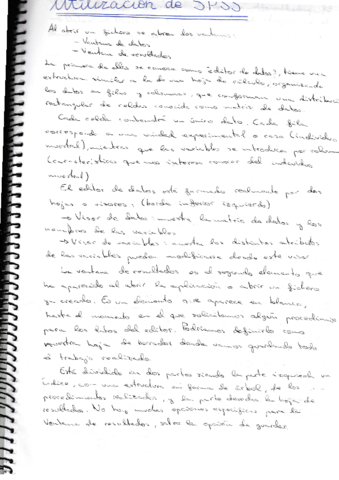 Utilización de SPSS
Al abrir un fichero se abren dos ventanas:
- Ventana de datos
- Ventana de resultados
La primera de ellas se conoce como "editor de datos", tiene una
estructura similar a la de una hoja de cálculo, organizando
los datos en filas y columnas, que conforman una distribución
rectangular de celdas conocida como matriz de datos.
Cada celda contendrá un único dato. Cada fila
corresponde a una unidad experimental o caso (individuo
muestral), mientras que las variables se introducen por columna
(características que nos interesa conocer del individuo
muestral)
El editor de datos está formado realmente por dos
hojas o visores: (borde inferior izquierdo)
→ Visor de datos: muestra la matriz de datos y los
nombres de las variables
→ Visor de variables: muestra los distintos atributos
de las variables pueden modificarse desde este visor
La ventana de resultados es el segundo elemento que
ha aparecido al abrir la aplicación o abrir un fichero
ya creado. Es un elemento que aparece en blanco,
hasta el momento en el que solicitamos algún procedimiento
para los datos del editor. Podríamos definirlo como
nuestra hoja de borrador donde vamos guardando todo
el trabajo realizado.
Está dividida en dos partes siendo la parte izquierda un
índice, con una estructura en forma de árbol, de los
procedimientos realizados, y la parte derecha la hoja de
resultados. No hay muchas opciones específicas para la
ventana de resultados, salvo la opción de guardar